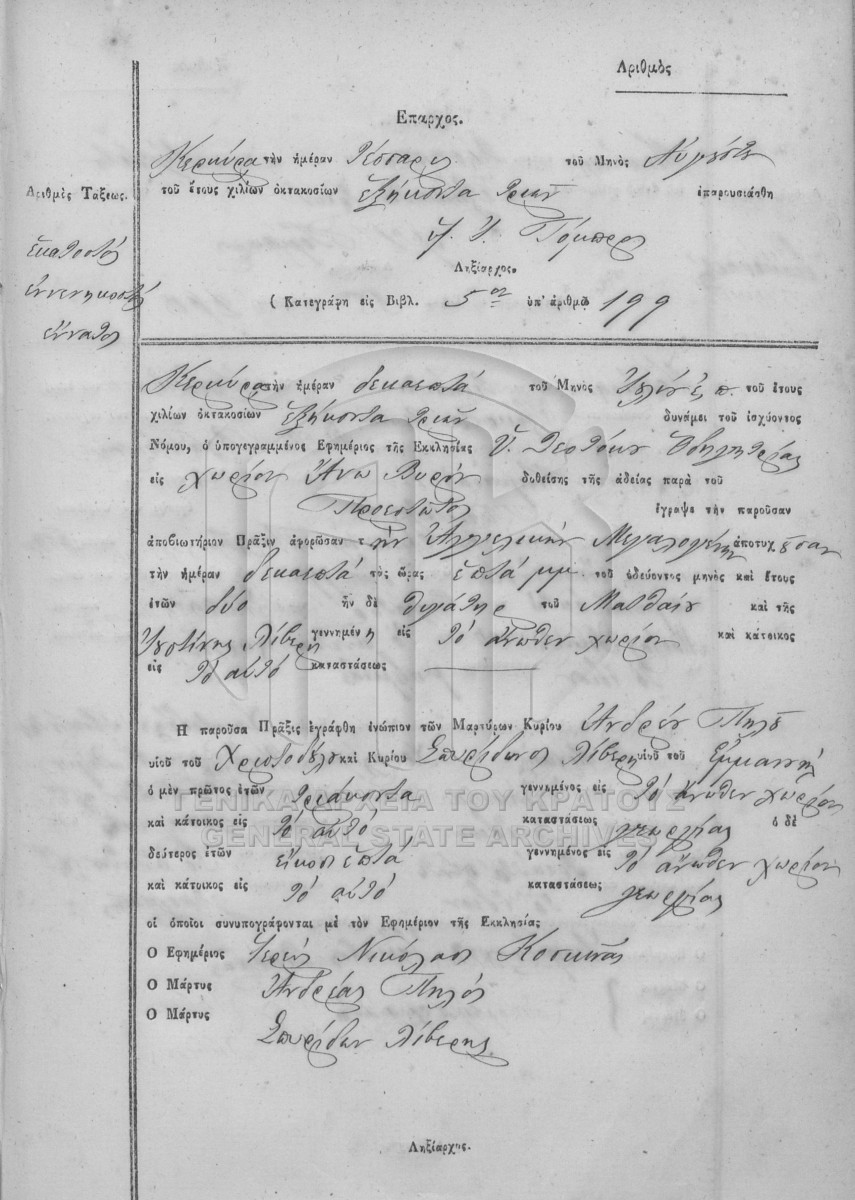 Αριθμὸς
Επαρχος.
Κερκύρα τὴν ἡμέραν τέσσαρες τοῦ Μηνὸς Αὐγούστου
τοῦ ἔτους χιλίων ὀκτακοσίων ἑξήκοντα τριῶν ἐπαρουσιάσθη
Αριθμὸς Τάξεως.
ἑκατοστὸς
ἐννενηκοστὸς
ἔννατος
Ληξίαρχος.
( Κατεγράφη εἰς Βιβλ. 5ον ὑπ' ἀριθμῷ 199
Κερκύρα τὴν ἡμέραν δεκαεπτὰ τοῦ Μηνὸς Ἰουλίου ἐ. π. τοῦ ἔτους
χιλίων ὀκτακοσίων ἑξήκοντα τριῶν δυνάμει τοῦ ἰσχύοντος
Νόμου, ὁ ὑπογεγραμμένος Εφημέριος τῆς Εκκλησίας Ὑ. Θεοτόκου
εἰς χωρίον Ἄνω δοθείσης τῆς ἀδείας παρὰ τοῦ
Προεστῶτος ἔγραψε τὴν παροῦσαν
ἀποβιωτήριον Πρᾶξιν ἀφορῶσαν τὴν Ἀγγελικὴν Μεγαλογένη ἀποτυχοῦσαν
τὴν ἡμέραν δεκαεπτὰ τὰς ὥρας ἑπτὰ μμ. τοῦ ὁδεύοντος μηνὸς καὶ ἔτους
ἐτῶν δύο ἦν δὲ θυγάτηρ τοῦ Ματθαίου καὶ τῆς
Ἰουστίνης Λίβερη γεννημένη εἰς τὸ ἄνωθεν χωρίον καὶ κάτοικος
εἰς τὸ αὐτὸ καταστάσεως
Η παροῦσα Πρᾶξις ἐγράφθη ἐνώπιον τῶν Μαρτύρων Κυρίου Ἀνδρέου Πηλοῦ
υἱοῦ τοῦ Χριστοδούλου καὶ Κυρίου Σπυρίδωνος Λίβερη υἱοῦ τοῦ Ἐμμανουὴλ
ὁ μὲν πρῶτος ἐτῶν τριάκοντα γεννημένος εἰς τὸ ἄνωθεν χωρίον
καὶ κάτοικος εἰς τὸ αὐτὸ καταστάσεως γεωργίας ὁ δὲ
δεύτερος ἐτῶν εἴκοσι ἑπτὰ γεννημένος εἰς τὸ ἄνωθεν χωρίον
καὶ κάτοικος εἰς τὸ αὐτὸ καταστάσεως γεωργίας
οἱ ὁποῖοι συνυπογράφονται μὲ τὸν Εφημέριον τῆς Εκκλησίας
Ο Εφημέριος Ἱερεὺς Νικόλαος Κοσκινᾶς
Ο Μάρτυς Ἀνδρέας Πηλὸς
Ο Μάρτυς
Σπυρίδων Λίβερης
Ληξίαρχος.
ΓΕΝΙΚΑ ΑΡΧΕΙΑ ΤΟΥ ΚΡΑΤΟΥΣ
GENERAL STATE ARCHIVES